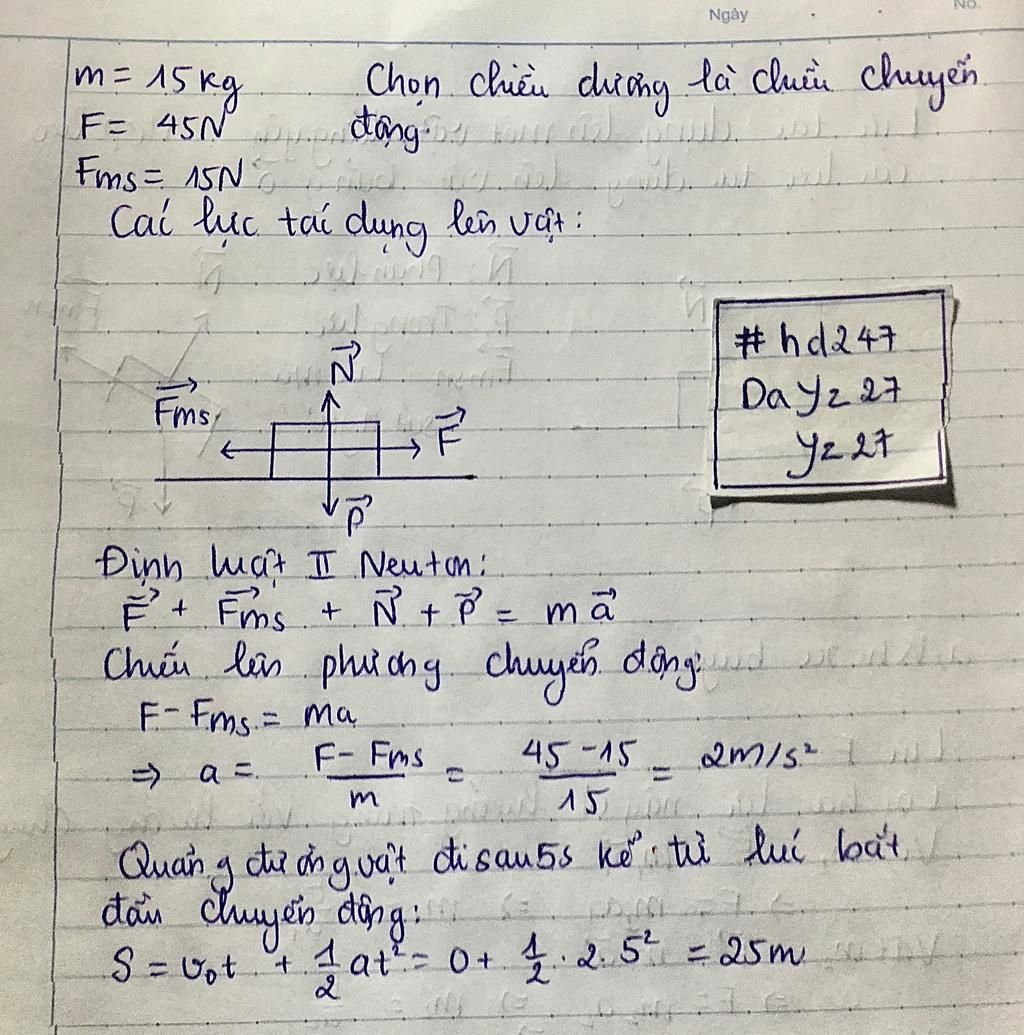 Ngày
No.
m = 15kg Chọn chiều dương là chiều chuyển
F = 45N động.
Fms = 15N
Các lực tác dụng lên vật:
N⃗
F⃗ms
F⃗
P⃗
#hd247
Dayz27
yz27
Định luật II Neuton:
F⃗ + F⃗ms + N⃗ + P⃗ = ma⃗
Chiếu lên phương chuyển động:
F - Fms = ma
⇒ a = (F - Fms)/m = (45 - 15)/15 = 2m/s²
Quãng đường vật đi sau 5s kể từ lúc bắt
đầu chuyển động:
S = v₀t + 1/2 at² = 0 + 1/2 . 2. 5² = 25m